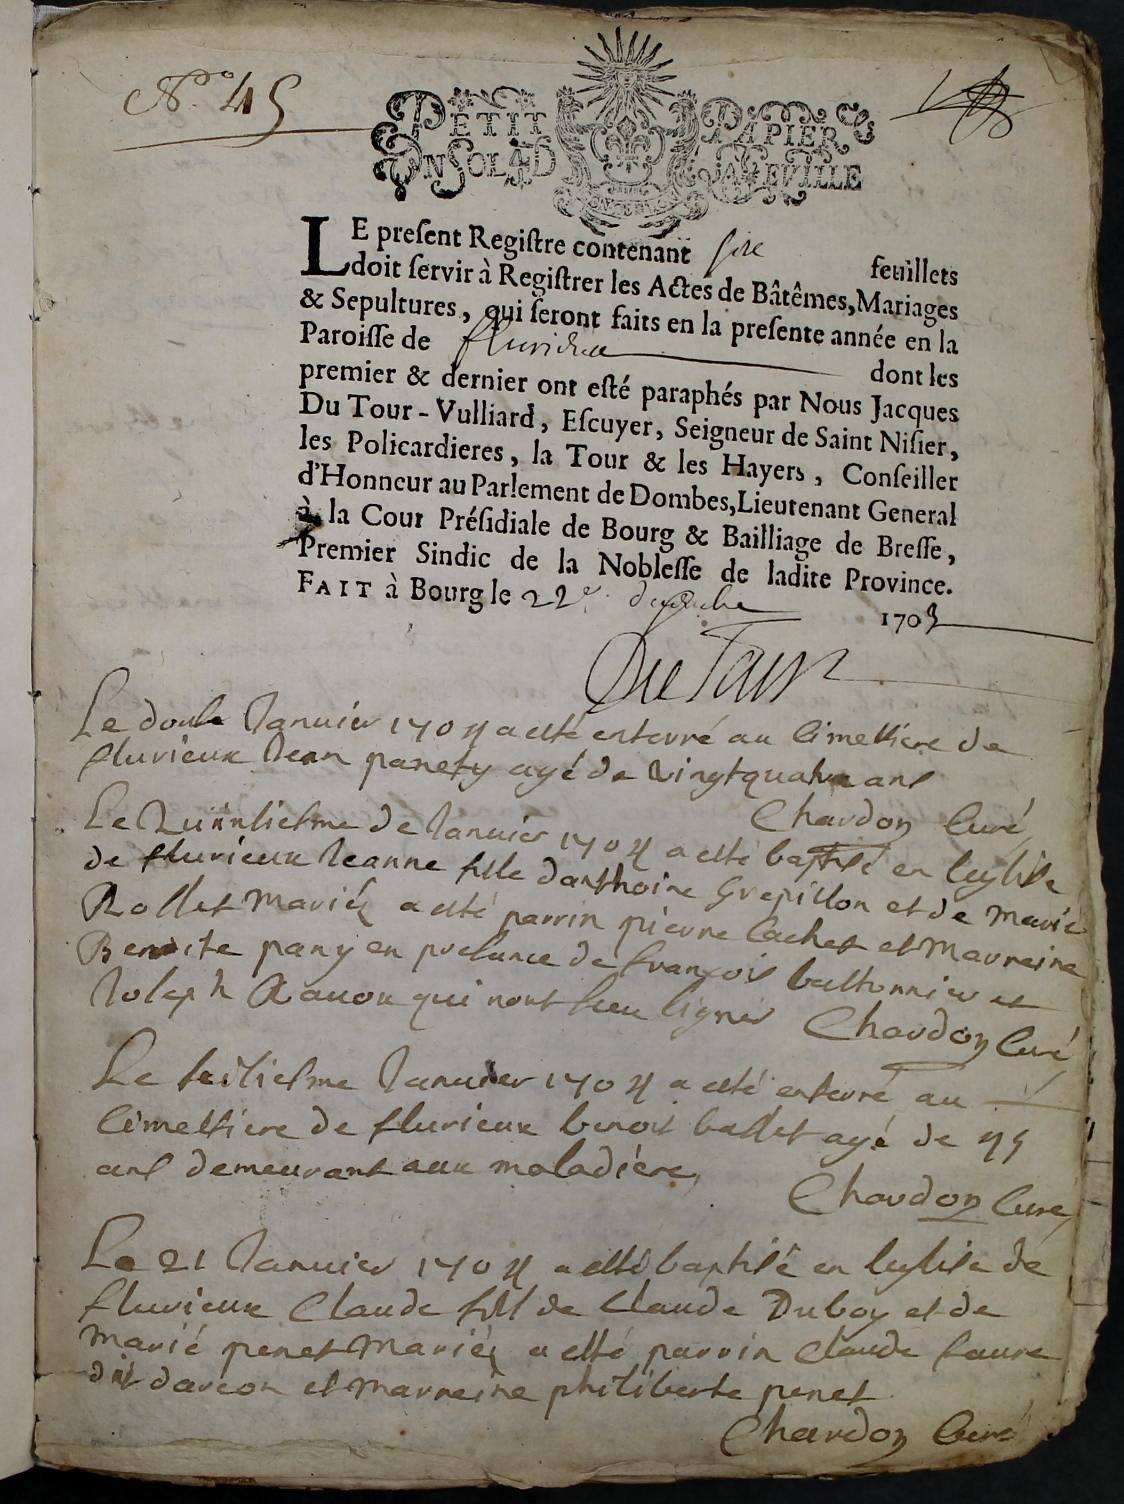 N.° 45
PETIT PAPIER
UN SOL 4 D LA FEUILLE
LE preſent Regiſtre contenant feuillets
doit ſervir à Regiſtrer les Actes de Bâtêmes, Mariages
& Sepultures, qui ſeront faits en la preſente année en la
Paroiſſe de dont les
premier & dernier ont eſté paraphés par Nous Jacques
Du Tour-Vulliard, Eſcuyer, Seigneur de Saint Niſier,
les Policardieres, la Tour & les Hayers, Conſeiller
d'Honneur au Parlement de Dombes, Lieutenant General
à la Cour Préſidiale de Bourg & Bailliage de Breſſe,
Premier Sindic de la Nobleſſe de ladite Province.
FAIT à Bourg le 22e decembre 1703
DuTour
Le douſe Januier 1704 a esté enterré au Cimettiere de
flurieux Jean panety agé de vingtquatre ans
Chardon Curé
Le quinsiesme de Januier 1704 a esté baptisé en leglise
de flurieux Jeanne fille danthoine Grepillon et de Marie
Rollet Mariés a esté parrin pierre Cachet et Marreine
Benoite pany en presance de françois bastonnier et
Joseph Rauou qui nont sceu signer Chardon Curé
Le seisiesme Januier 1704 a esté enterré au
Cimettiere de flurieux benoit ballet agé de 45
ans demeurant aux maladiere,
Chardon Curé
Le 21 Januier 1704 a esté baptisé en leglise de
flurieux Claude fils de Claude Duboy et de
Marie penet Mariés a esté parrin Claude faure
dit darcon et Marreine philiberte penet
Chardon Curé